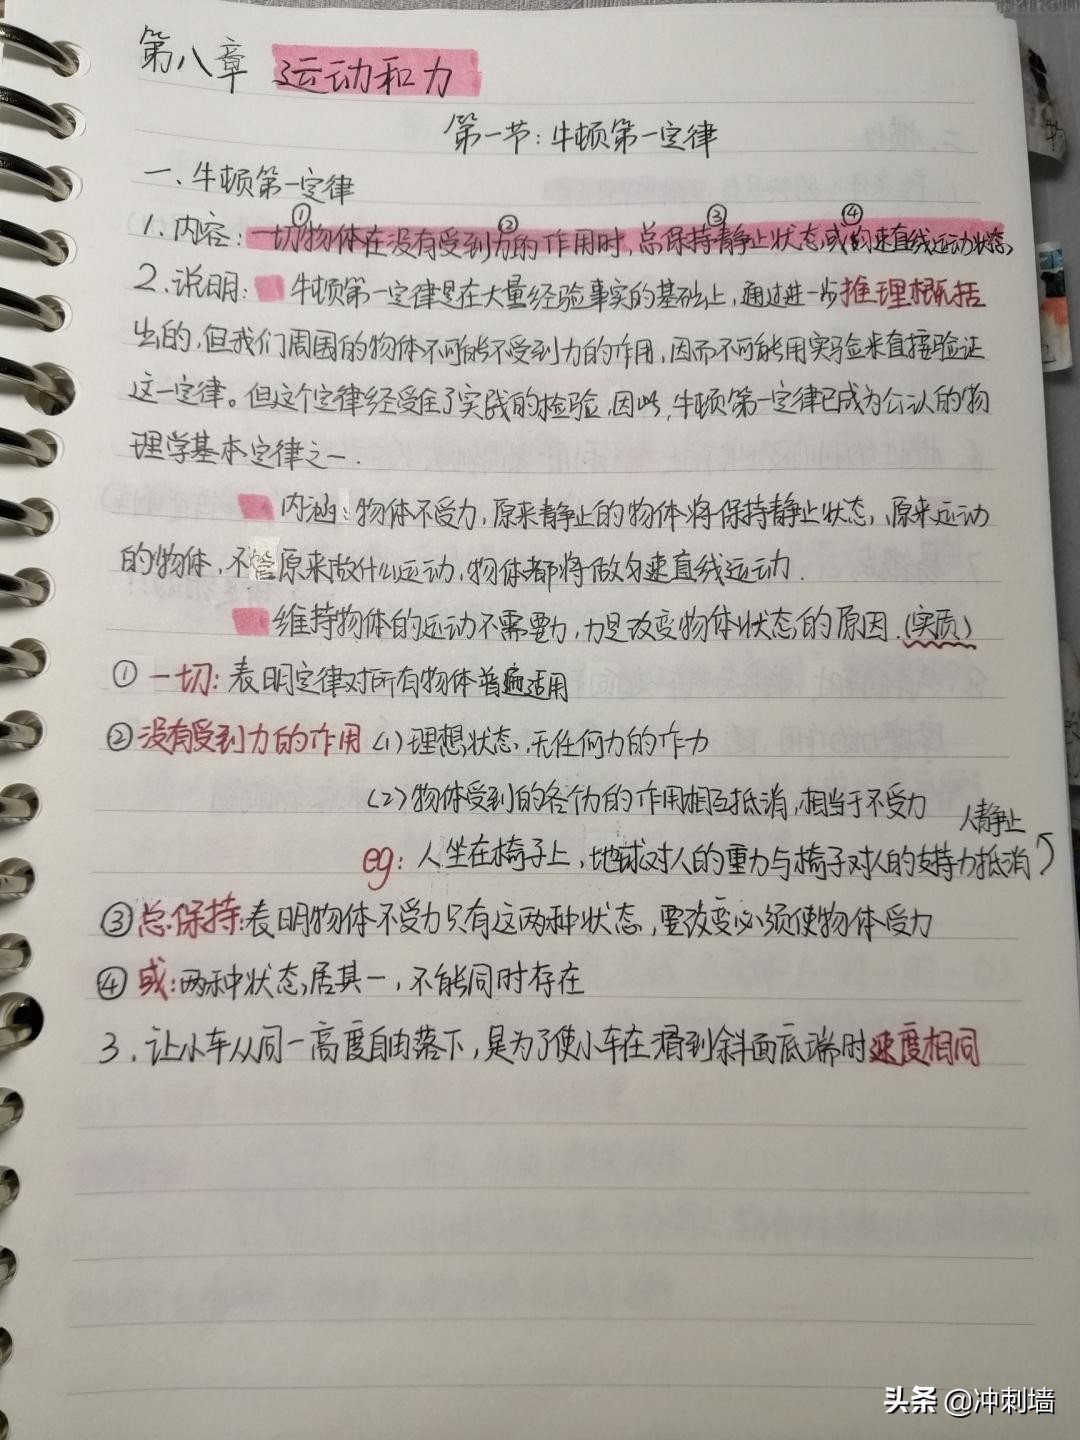 第八章 运动和力
第一节：牛顿第一定律
一、牛顿第一定律
① ② ③ ④
1.内容：一切物体在没有受到力的作用时，总保持静止状态或匀速直线运动状态
2.说明： 牛顿第一定律是在大量经验事实的基础上，通过进一步推理概括
出的，但我们周围的物体不可能不受到力的作用，因而不可能用实验来直接验证
这一定律。但这个定律经受住了实践的检验，因此，牛顿第一定律已成为公认的物
理学基本定律之一.
内涵：物体不受力，原来静止的物体将保持静止状态，原来运动
的物体，不管原来做什么运动，物体都将做匀速直线运动.
维持物体的运动不需要力，力是改变物体状态的原因.(实质)
①一切：表明定律对所有物体普遍适用
②没有受到力的作用 (1)理想状态，无任何力的作力
(2)物体受到的各个力的作用相互抵消，相当于不受力
人静止
eg：人坐在椅子上，地球对人的重力与椅子对人的支持力抵消
③总保持：表明物体不受力只有这两种状态，要改变必须使物体受力
④或：两种状态居其一，不能同时存在
3.让小车从同一高度自由落下，是为了使小车在滑到斜面底端时速度相同
头条 @冲刺墙